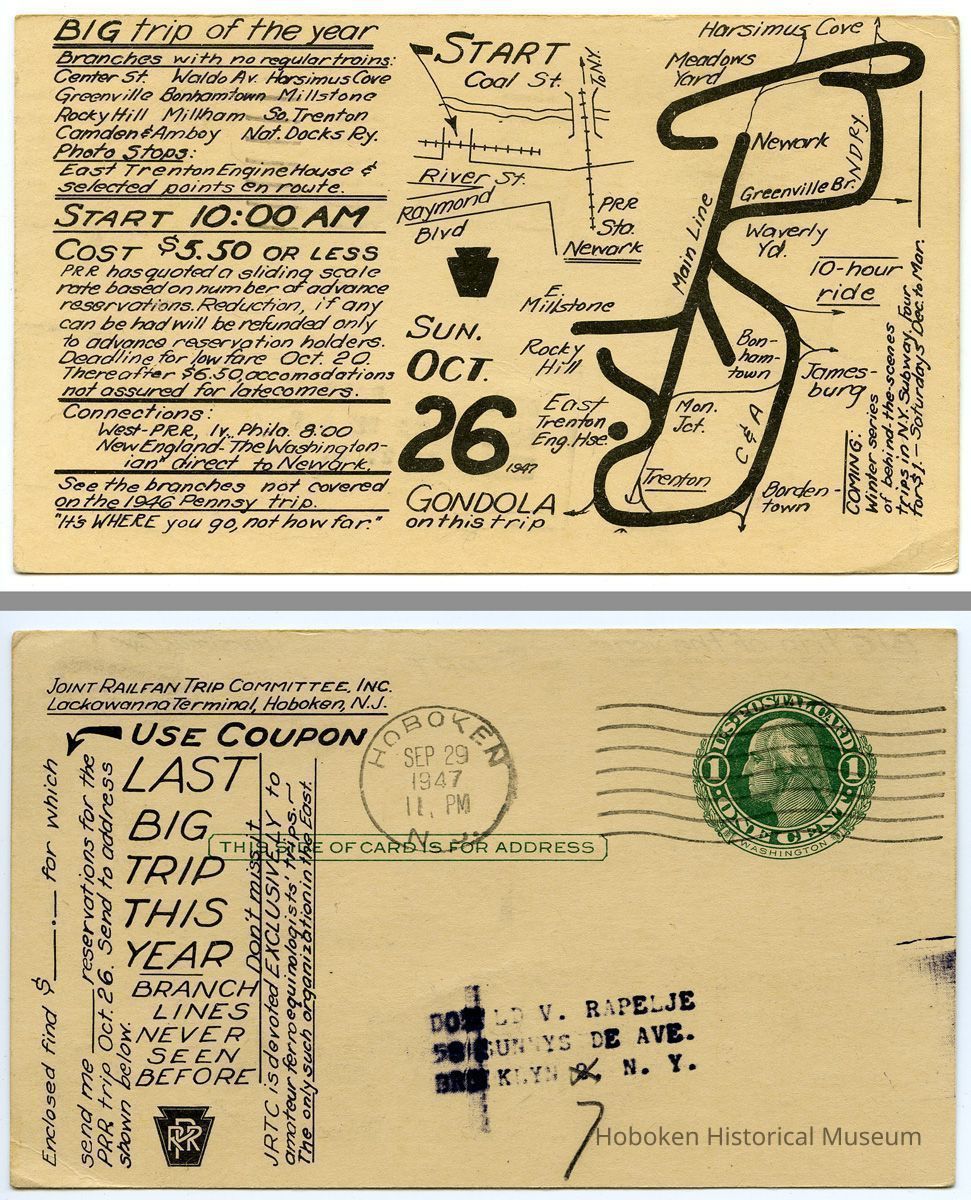 BIG trip of the year
Branches with no regular trains:
Center St. Waldo Av. Harsimus Cove
Greenville Bonhamtown Millstone
Rocky Hill Millham So. Trenton
Camden & Amboy Nat. Docks Ry.
Photo Stops:
East Trenton Engine House &
selected points en route.
START 10:00 AM
COST $5.50 OR LESS
PRR has quoted a sliding scale
rate based on number of advance
reservations. Reduction, if any
can be had will be refunded only
to advance reservation holders.
Deadline for low fare Oct. 20.
Thereafter $6.50, accomodations
not assured for latecomers.
Connections:
West-PRR, lv. Phila. 8:00
New England-The Washington-
ian" direct to Newark.
See the branches not covered
on the 1946 Pennsy trip.
"It's WHERE you go, not how far."
START
Coal St.
To N.Y.
River St.
Raymond
Blvd
PRR
Sta.
Newark
SUN.
OCT.
26
1947
GONDOLA
on this trip
Harsimus Cove
Meadows
Yard
Newark
NDRy.
Greenville Br.
Waverly
Yd.
Main Line
10-hour
ride
E.
Millstone
Rocky
Hill
Bon-
ham-
town
James-
burg
East
Trenton
Eng. Hse.
Mon.
Jct.
C & A
Trenton
Borden-
town
COMING:
Winter series
of behind-the-scenes
trips in N.Y. Subway, four
for $1.-Saturdays Dec. to Mar.
JOINT RAILFAN TRIP COMMITTEE, INC.
Lackawanna Terminal, Hoboken, N.J.
USE COUPON
Enclosed find $ . for which
send me reservations for the
PRR trip Oct. 26. Send to address
shown below.
LAST
BIG
TRIP
THIS
YEAR
BRANCH
LINES
NEVER
SEEN
BEFORE
PRR
Don't miss it
JRTC is devoted EXCLUSIVELY to
amateur ferroequinologists' trips.-
The only such organization in the East.
HOBOKEN
SEP 29
1947
11 PM
N. J.
THIS SIDE OF CARD IS FOR ADDRESS
U.S. POSTAL CARD
1 1
ONE CENT
WASHINGTON
LD V. RAPELJE
SUNNYS DE AVE.
KLYN N. Y.
7
Hoboken Historical Museum